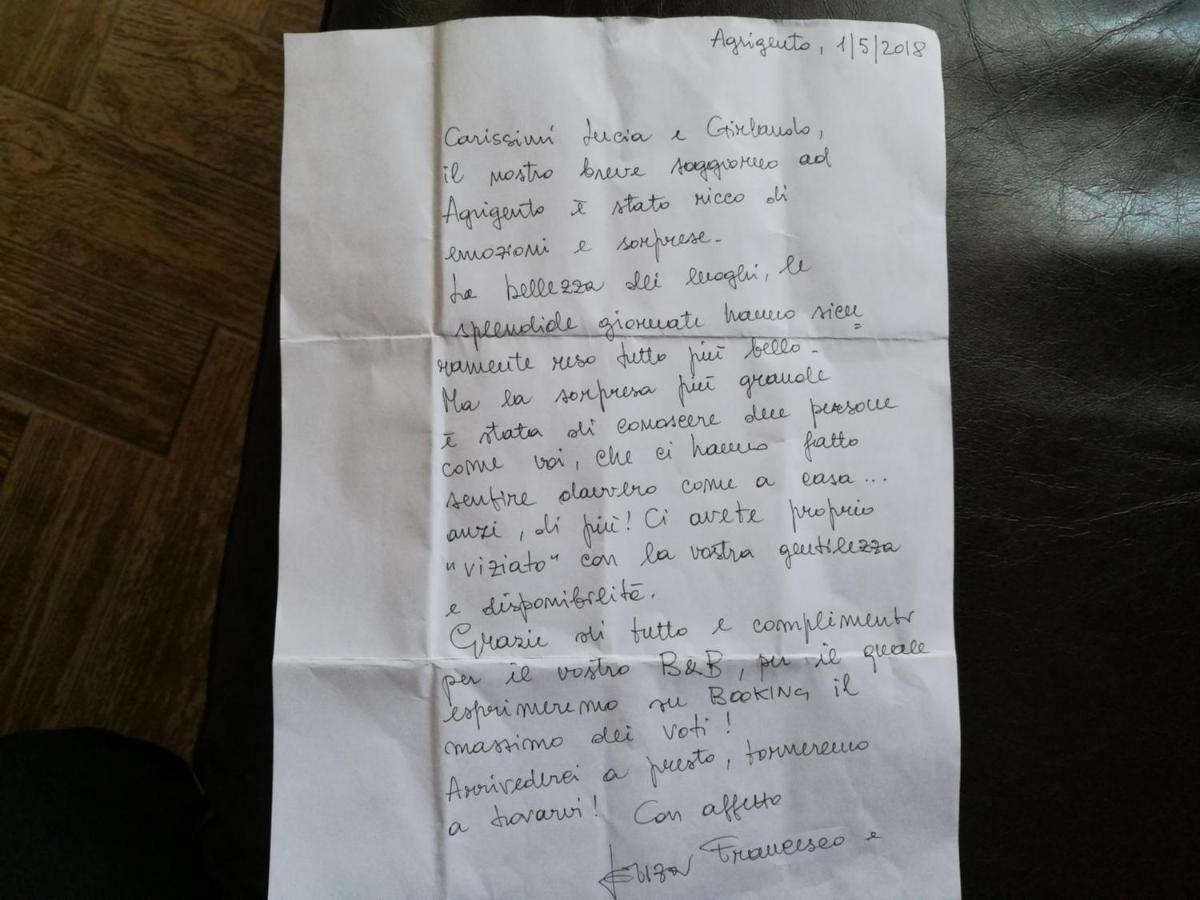 Agrigento, 1/5/2018
Carissimi Lucia e Girlando,
il nostro breve soggiorno ad
Agrigento è stato ricco di
emozioni e sorprese.
La bellezza dei luoghi, le
splendide giornate hanno sicu=
ramente reso tutto più bello.
Ma la sorpresa più grande
è stata di conoscere due persone
come voi, che ci hanno fatto
sentire davvero come a casa...
anzi, di più! Ci avete proprio
"viziato" con la vostra gentilezza
e disponibilità.
Grazie di tutto e complimenti
per il vostro B&B, per il quale
esprimeremo su BOOKING il
massimo dei voti!
Arrivederci a presto, torneremo
a trovarvi! Con affetto
Francesco e